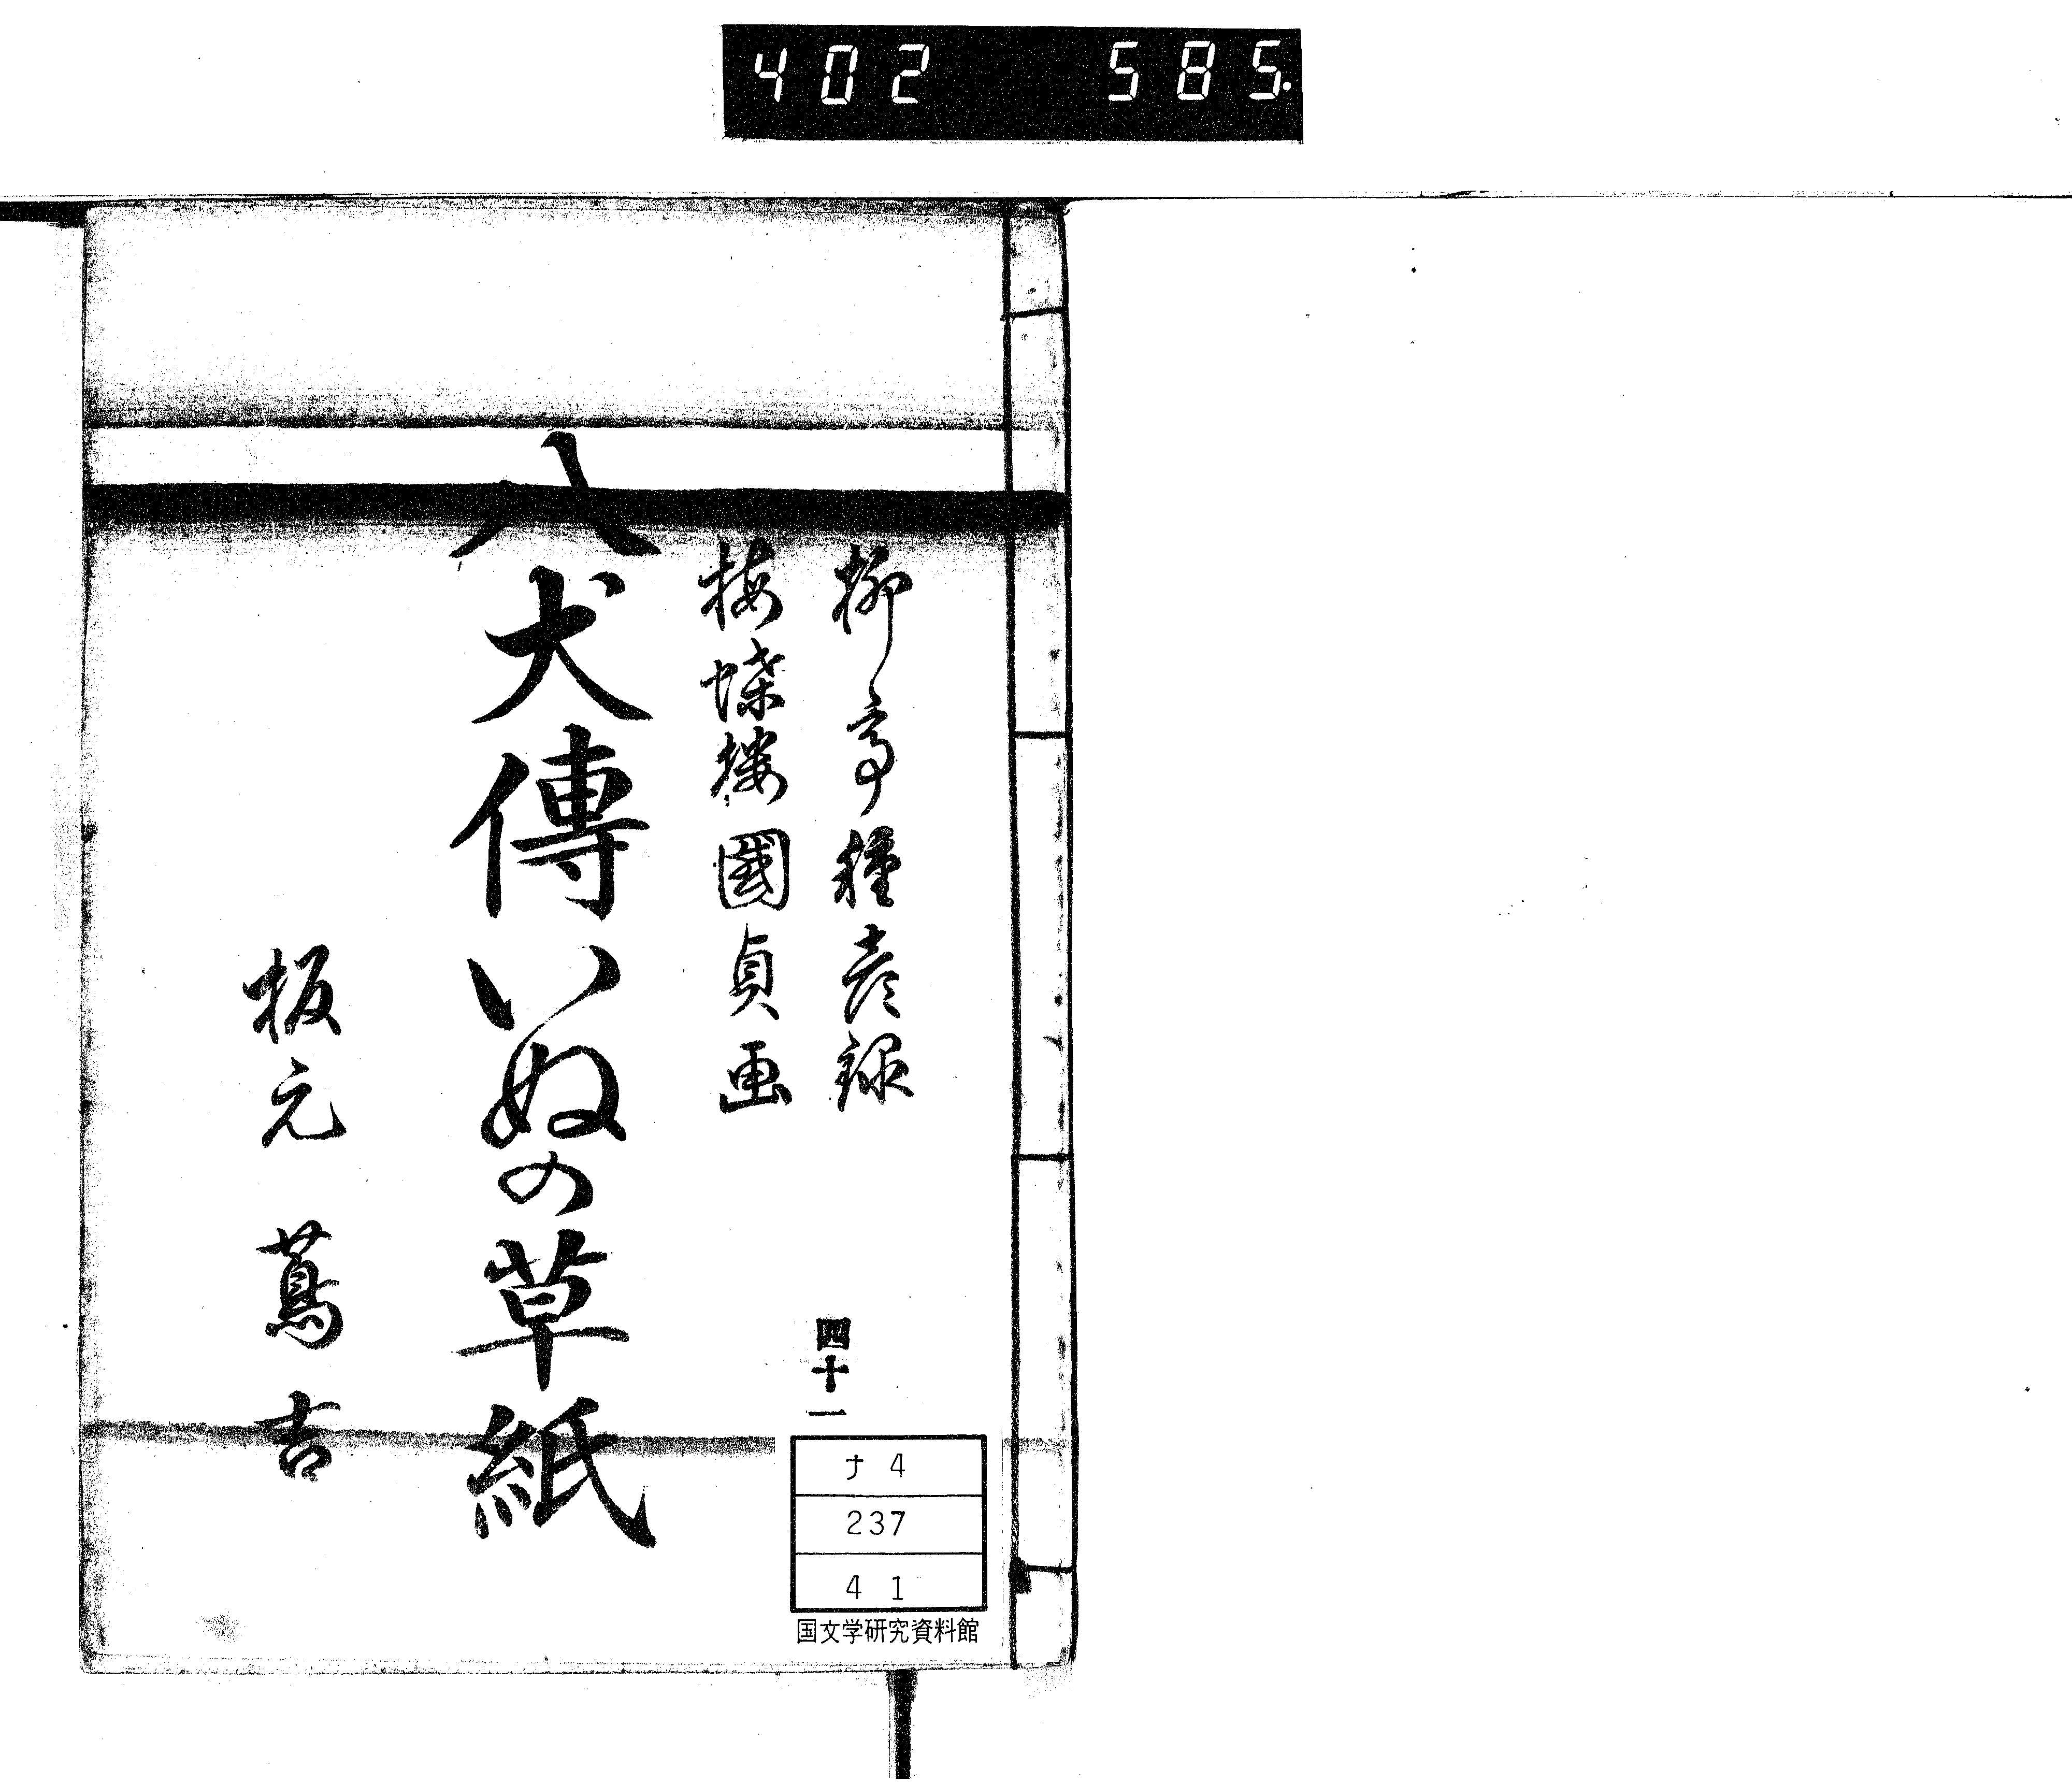 402 585.
柳亭種彦録
梅蝶楼國貞画
八犬傳いぬの草紙
板元 蔦吉
四十一
ナ4
237
41
国文学研究資料館